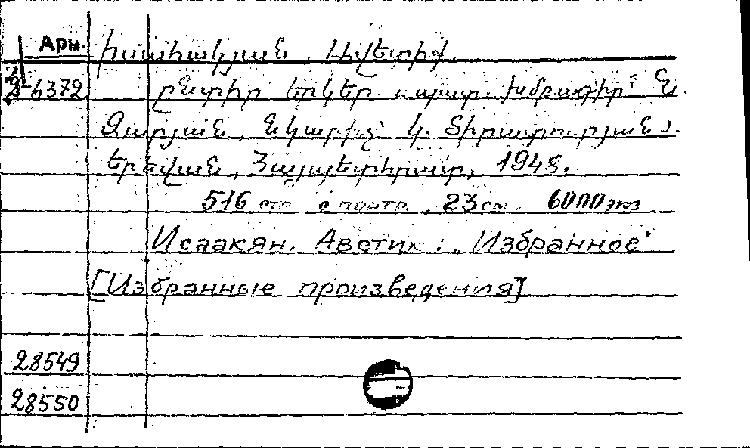 Арм. Իսահակյան, Ավետիք.
2-6372 Ընտիր երկեր
Զարյան, նկարիչ՝ Կ. Տիրատուրյան).
Երևան, Հայպետհրատ, 1948.
516 стр. с портр. 23 см. 6000 экз
Исаакян. Аветик: „Избранное"
[Избранные произведения]
28549
28550